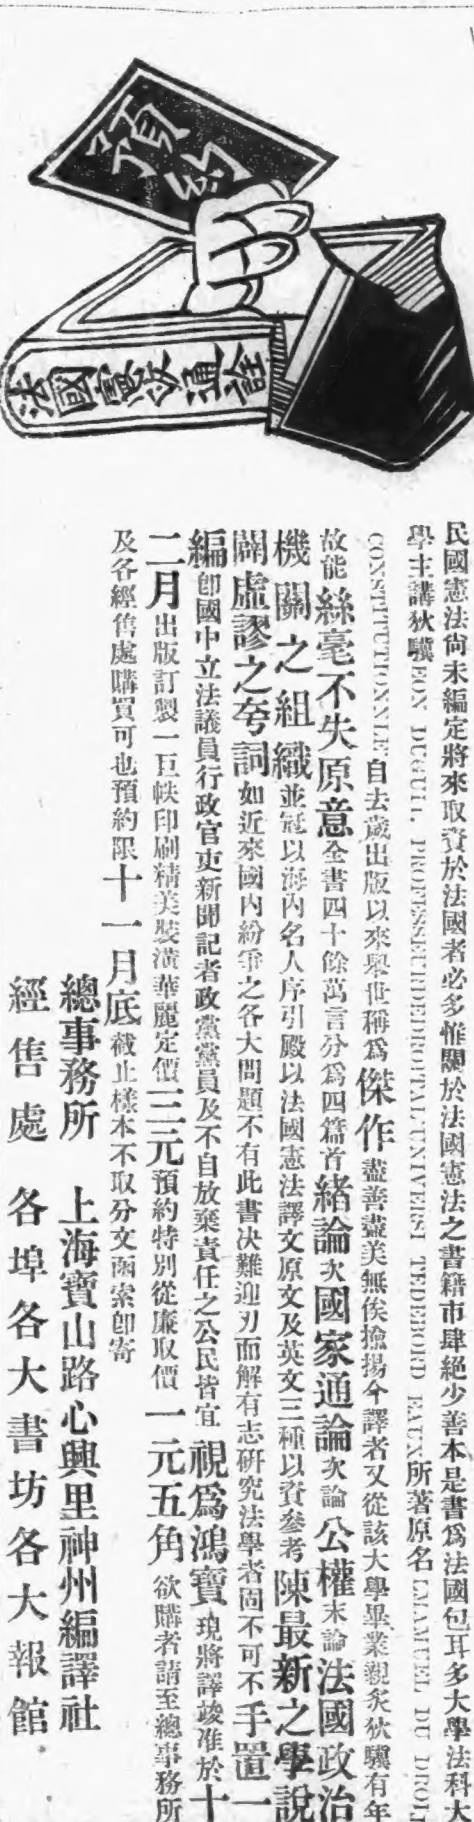 預約
法國憲政通詮
民國憲法尙未編定將來取資於法國者必多惟關於法國憲法之書籍市肆絕少善本是書爲法國包耳多大學法科大
學主講狄驥 EON DUGUIT, PROFESSEURDEDROITAL'UNIVERSI TEDEBORD EAUX 所著原名 MANUEL DU DROIT
CONSTITUTIONNLE 自去歲出版以來舉世稱爲傑作盡善盡美無俟揄揚今譯者又從該大學畢業親炙狄驥有年
故能絲毫不失原意全書四十餘萬言分爲四篇首緒論次國家通論次論公權末論法國政治
機關之組織並冠以海內名人序引殿以法國憲法譯文原文及英文三種以資參考陳最新之學說
闢虛謬之夸詞如近來國內紛爭之各大問題不有此書決難迎刃而解有志研究法學者固不可不手置一
編卽國中立法議員行政官吏新聞記者政黨黨員及不自放棄責任之公民皆宜視爲鴻寶現將譯竣准於十
二月出版訂製一巨帙印刷精美裝潢華麗定價三元預約特別從廉取價一元五角欲購者請至總事務所
及各經售處購買可也預約限十一月底截止樣本不取分文函索卽寄
總事務所 上海寶山路心興里神州編譯社
經售處 各埠各大書坊各大報館